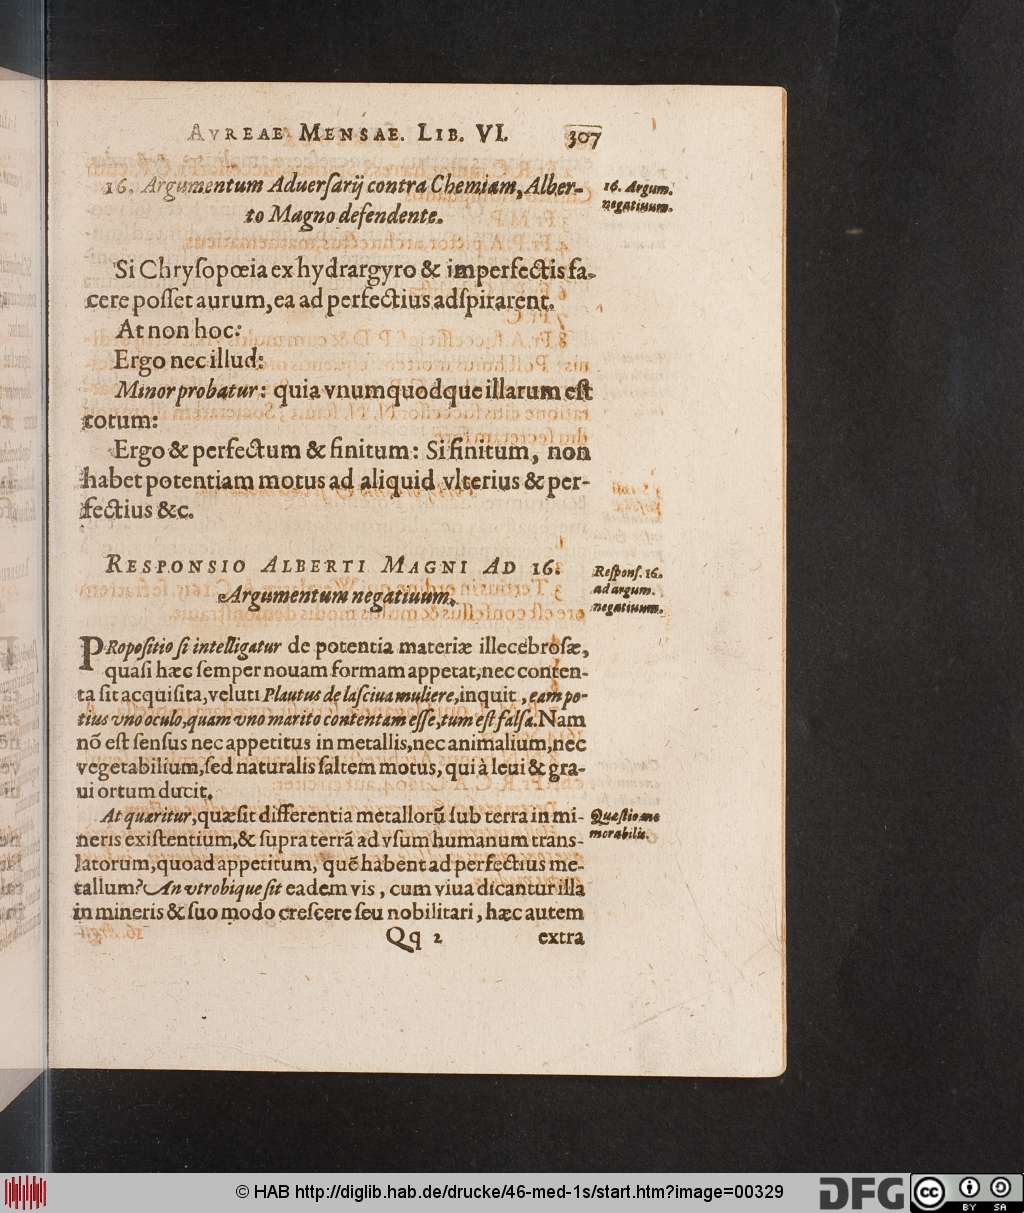 AVREAE MENSAE. LIB. VI. 307
16. Argumentum Aduerſarij contra Chemiam, Alber-
to Magno defendente.
16. Argum.
negatiuum.
Si Chryſopœia ex hydrargyro & imperfectis fa-
cere poſſet aurum, ea ad perfectius adſpirarent.
At non hoc:
Ergo nec illud:
Minor probatur: quia vnumquodque illarum eſt
totum:
Ergo & perfectum & finitum: Si finitum, non
habet potentiam motus ad aliquid vlterius & per-
fectius &c.
RESPONSIO ALBERTI MAGNI AD 16.
Argumentum negatiuum.
Reſponſ. 16.
ad argum.
negatiuum.
PRopoſitio ſi intelligatur de potentia materiæ illecebroſæ,
quaſi hæc ſemper nouam formam appetat, nec conten-
ta ſit acquiſita, veluti Plautus de laſciua muliere, inquit, eam po-
tius vno oculo, quam vno marito contentam eſſe, tum eſt falſa. Nam
nō eſt ſenſus nec appetitus in metallis, nec animalium, nec
vegetabilium, ſed naturalis ſaltem motus, qui à leui & gra-
ui ortum ducit.
At quæritur, quæ ſit differentia metallorū ſub terra in mi-
neris exiſtentium, & ſupra terrā ad vſum humanum trans-
latorum, quoad appetitum, quē habent ad perfectius me-
tallum? An vtrobique ſit eadem vis, cum viua dicantur illa
in mineris & ſuo modo creſcere ſeu nobilitari, hæc autem
Quæſtio me
morabilis.
Qq 2 extra
© HAB http://diglib.hab.de/drucke/46-med-1s/start.htm?image=00329
DFG
cc BY SA